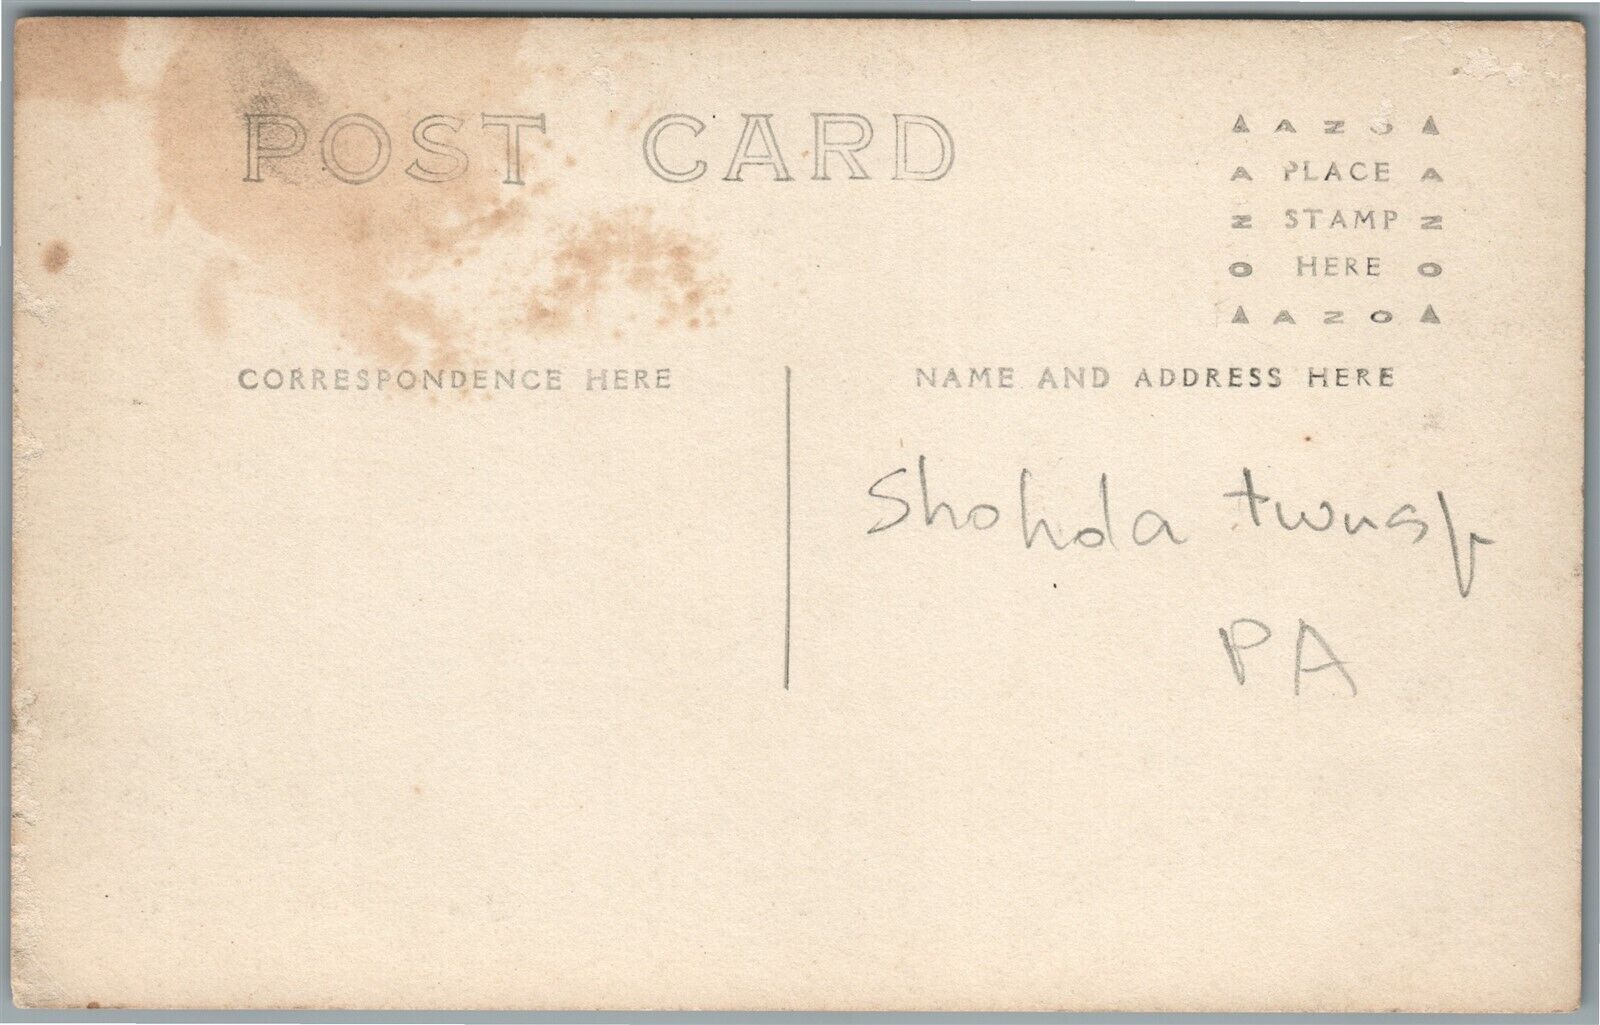 POST CARD
AZO
PLACE
STAMP
HERE
AZO
AZO
AZO
CORRESPONDENCE HERE
NAME AND ADDRESS HERE
Shohda twnsp
PA